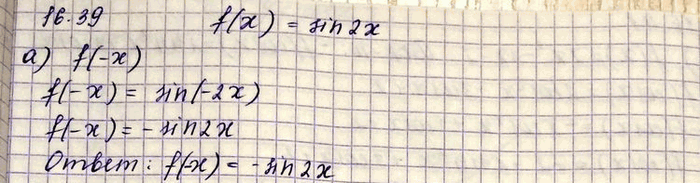 16.39 f(x) = sin2x
а) f(-x)
f(-x) = sin(-2x)
f(-x) = - sin2x
Ответ: f(-x) = -sin2x